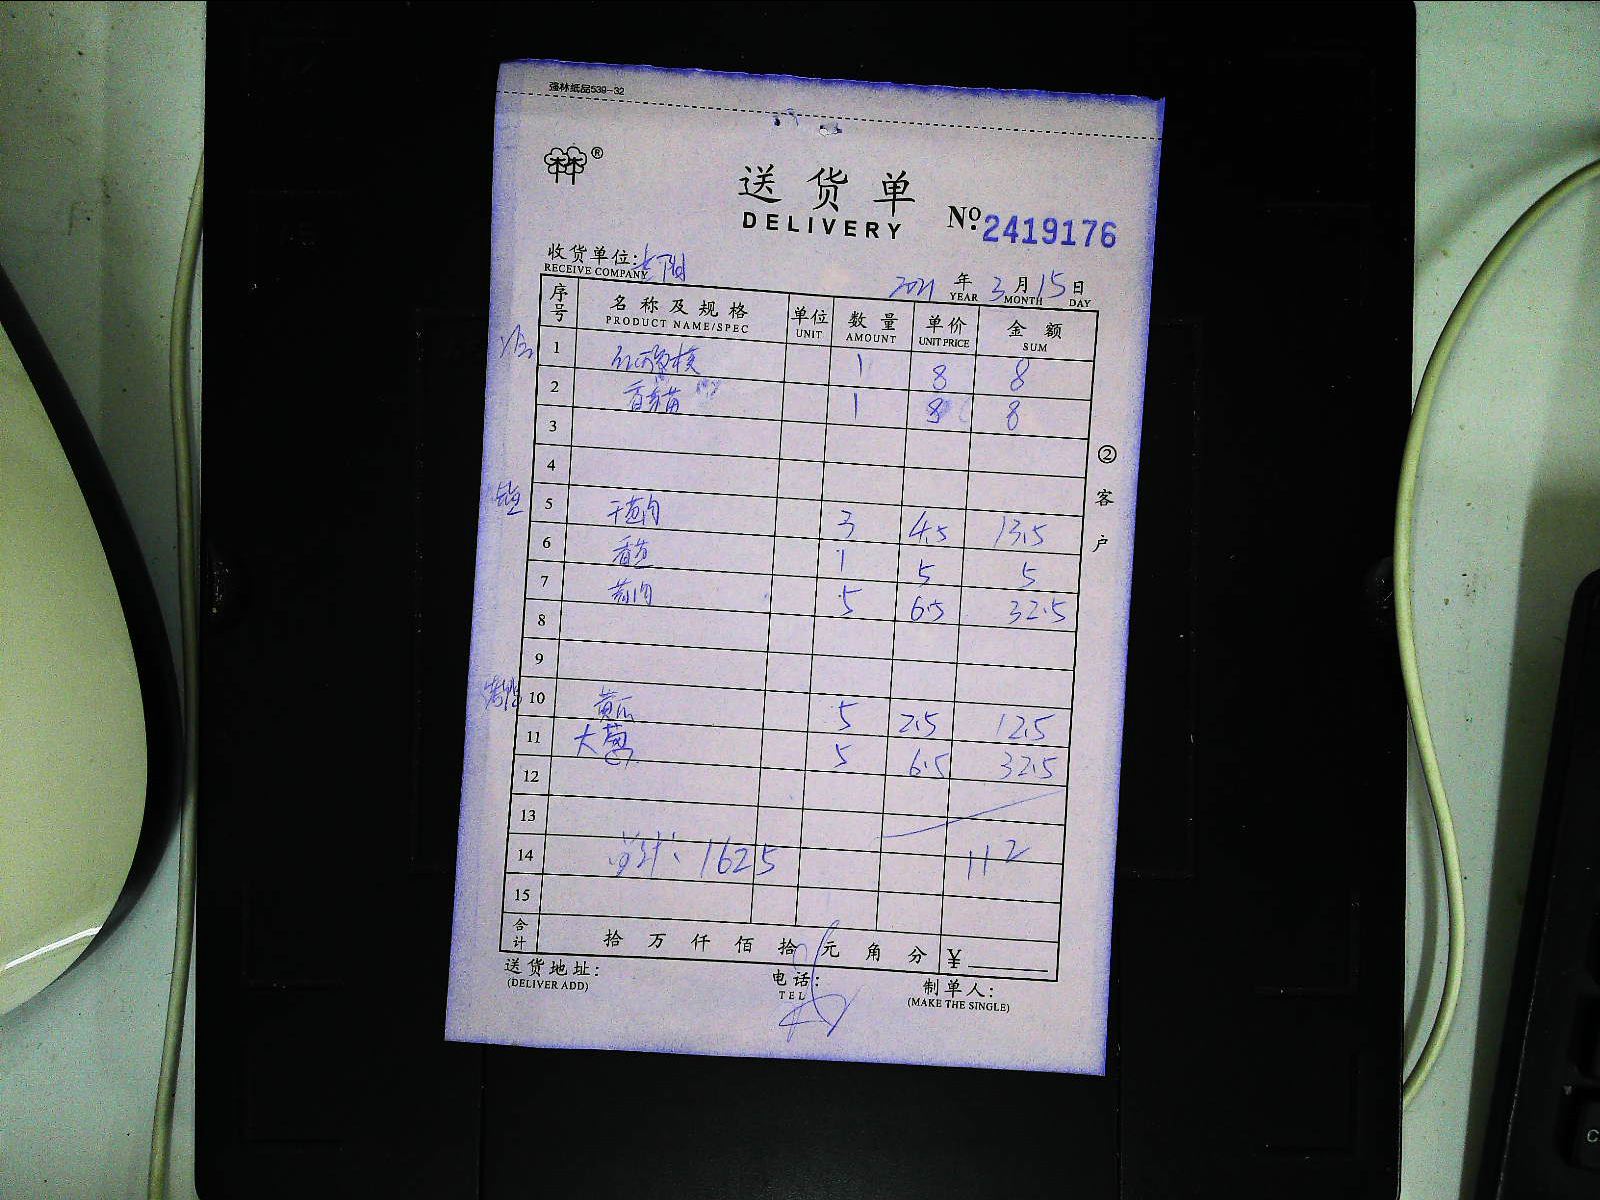 强林纸品539-32
®
送货单
DELIVERY
№ 2419176
收货单位:
RECEIVE COMPANY
2021 年 3 月 15 日
YEAR MONTH DAY
序号 名称及规格 单位 数量 单价 金额
PRODUCT NAME/SPEC UNIT AMOUNT UNIT PRICE SUM
1 1 8 8
2 1 8 8
3
4
5 3 4.5 13.5
6 1 5 5
7 5 6.5 32.5
8
9
10 黄瓜 5 2.5 12.5
11 大葱 5 6.5 32.5
12
13
14 1625 112
15
合计 拾 万 仟 佰 拾 元 角 分 ¥
送货地址: 电话: 制单人:
(DELIVER ADD) TEL (MAKE THE SINGLE)
② 客户